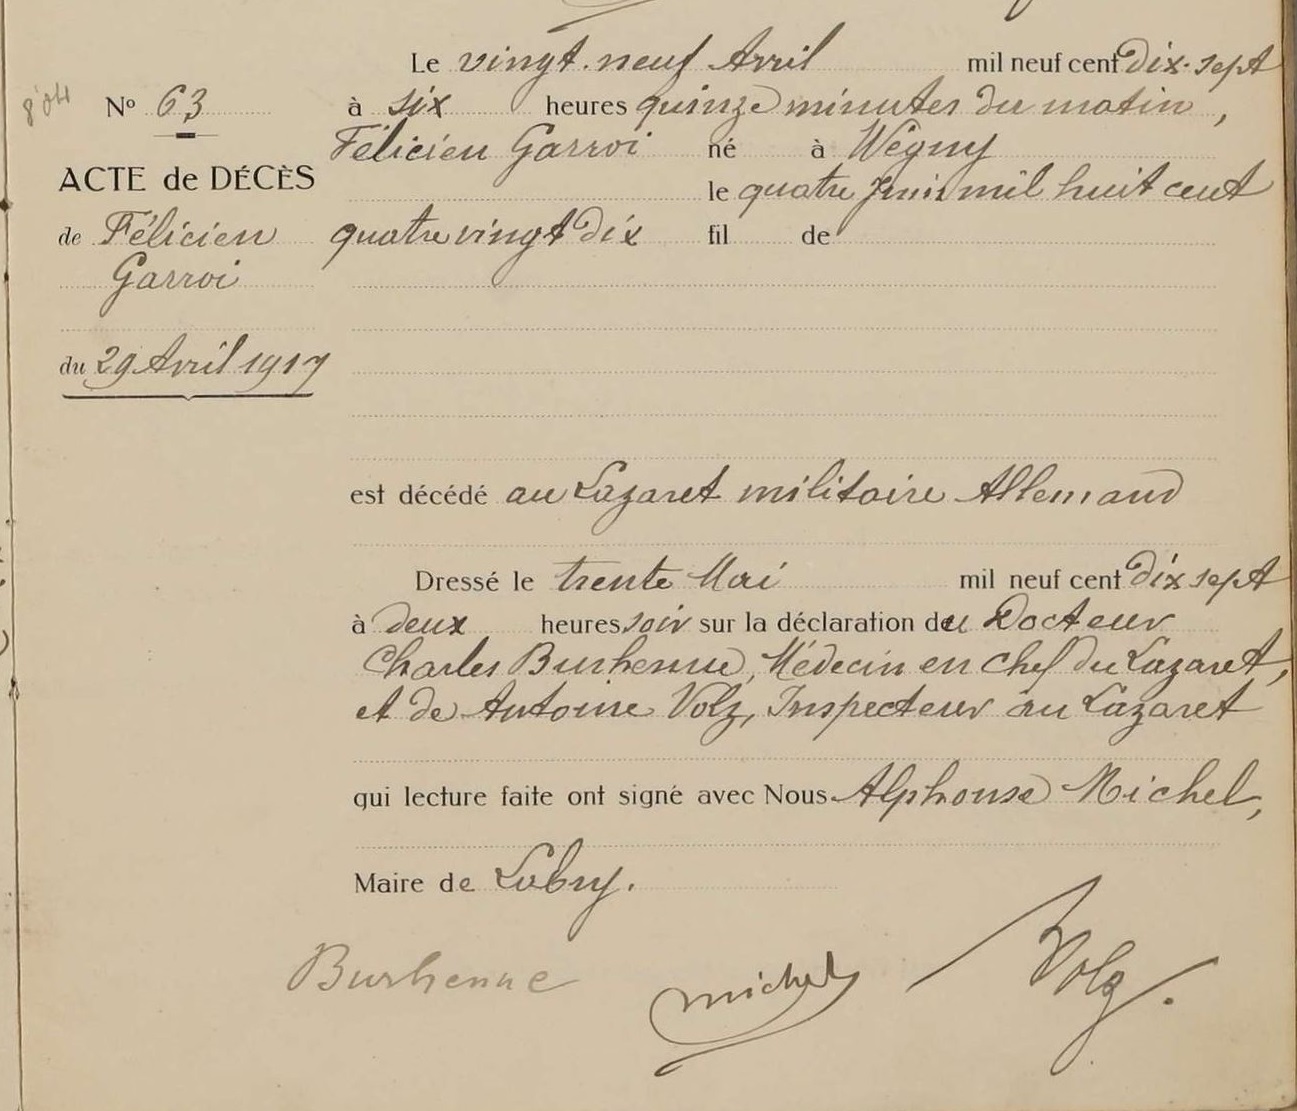 Le vingt-neuf Avril mil neuf cent Dix-sept
No 63
à six heures quinze minutes du matin,
Félicien Garroi né à Wégny
ACTE de DÉCÈS
le quatre Juin mil huit cent
de Félicien
quatre vingt dix fil de
Garroi
du 29 Avril 1917
est décédé au Lazaret militaire Allemand
Dressé le trente Mai mil neuf cent Dix sept
à deux heures soir sur la déclaration du Docteur
Charles Burhenne, Médecin en chef du Lazaret,
et de Antoine Volz, Inspecteur au Lazaret
qui lecture faite ont signé avec Nous Alphonse Michel,
Maire de Labry.
Burhenne Michel Volz.